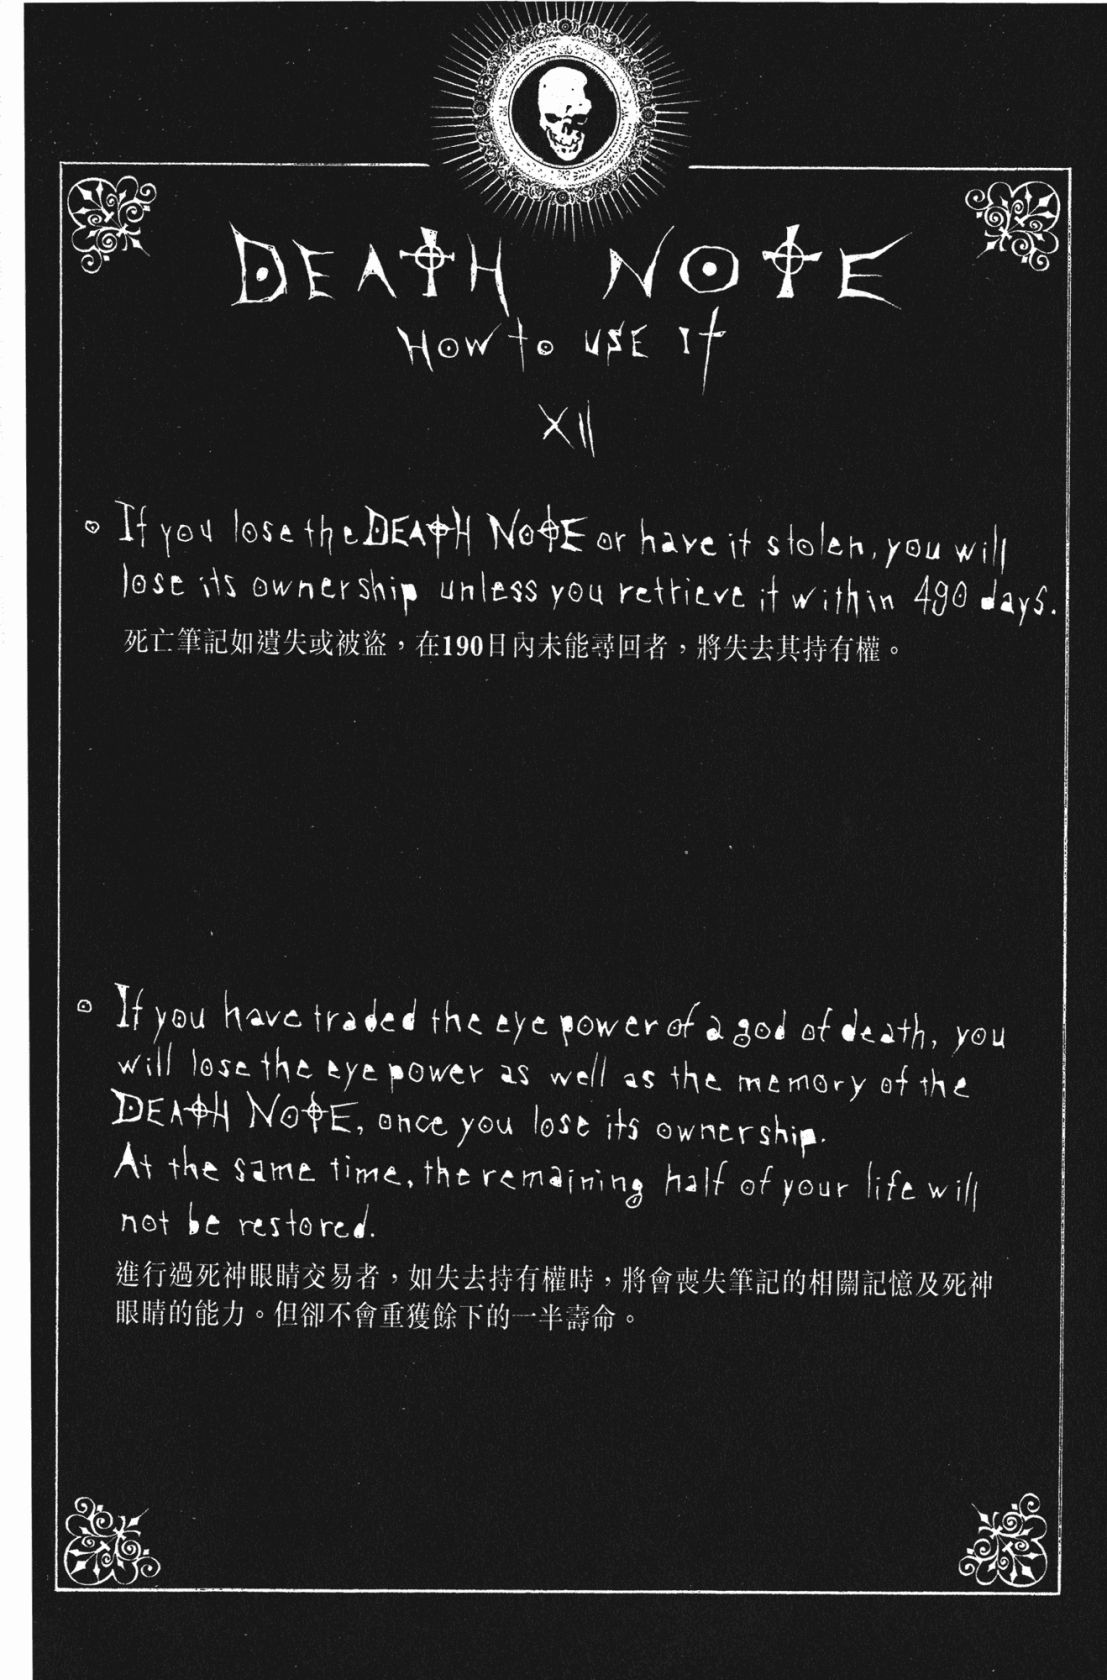 DEATH NOTE
How to use it
XII
If you lose the DEATH NOTE or have it stolen, you will
lose its ownership unless you retrieve it within 490 days.
死亡筆記如遺失或被盜，在190日內未能尋回者，將失去其持有權。
If you have traded the eye power of a god of death, you
will lose the eye power as well as the memory of the
DEATH NOTE, once you lose its ownership.
At the same time, the remaining half of your life will
not be restored.
進行過死神眼睛交易者，如失去持有權時，將會喪失筆記的相關記憶及死神
眼睛的能力。但卻不會重獲餘下的一半壽命。